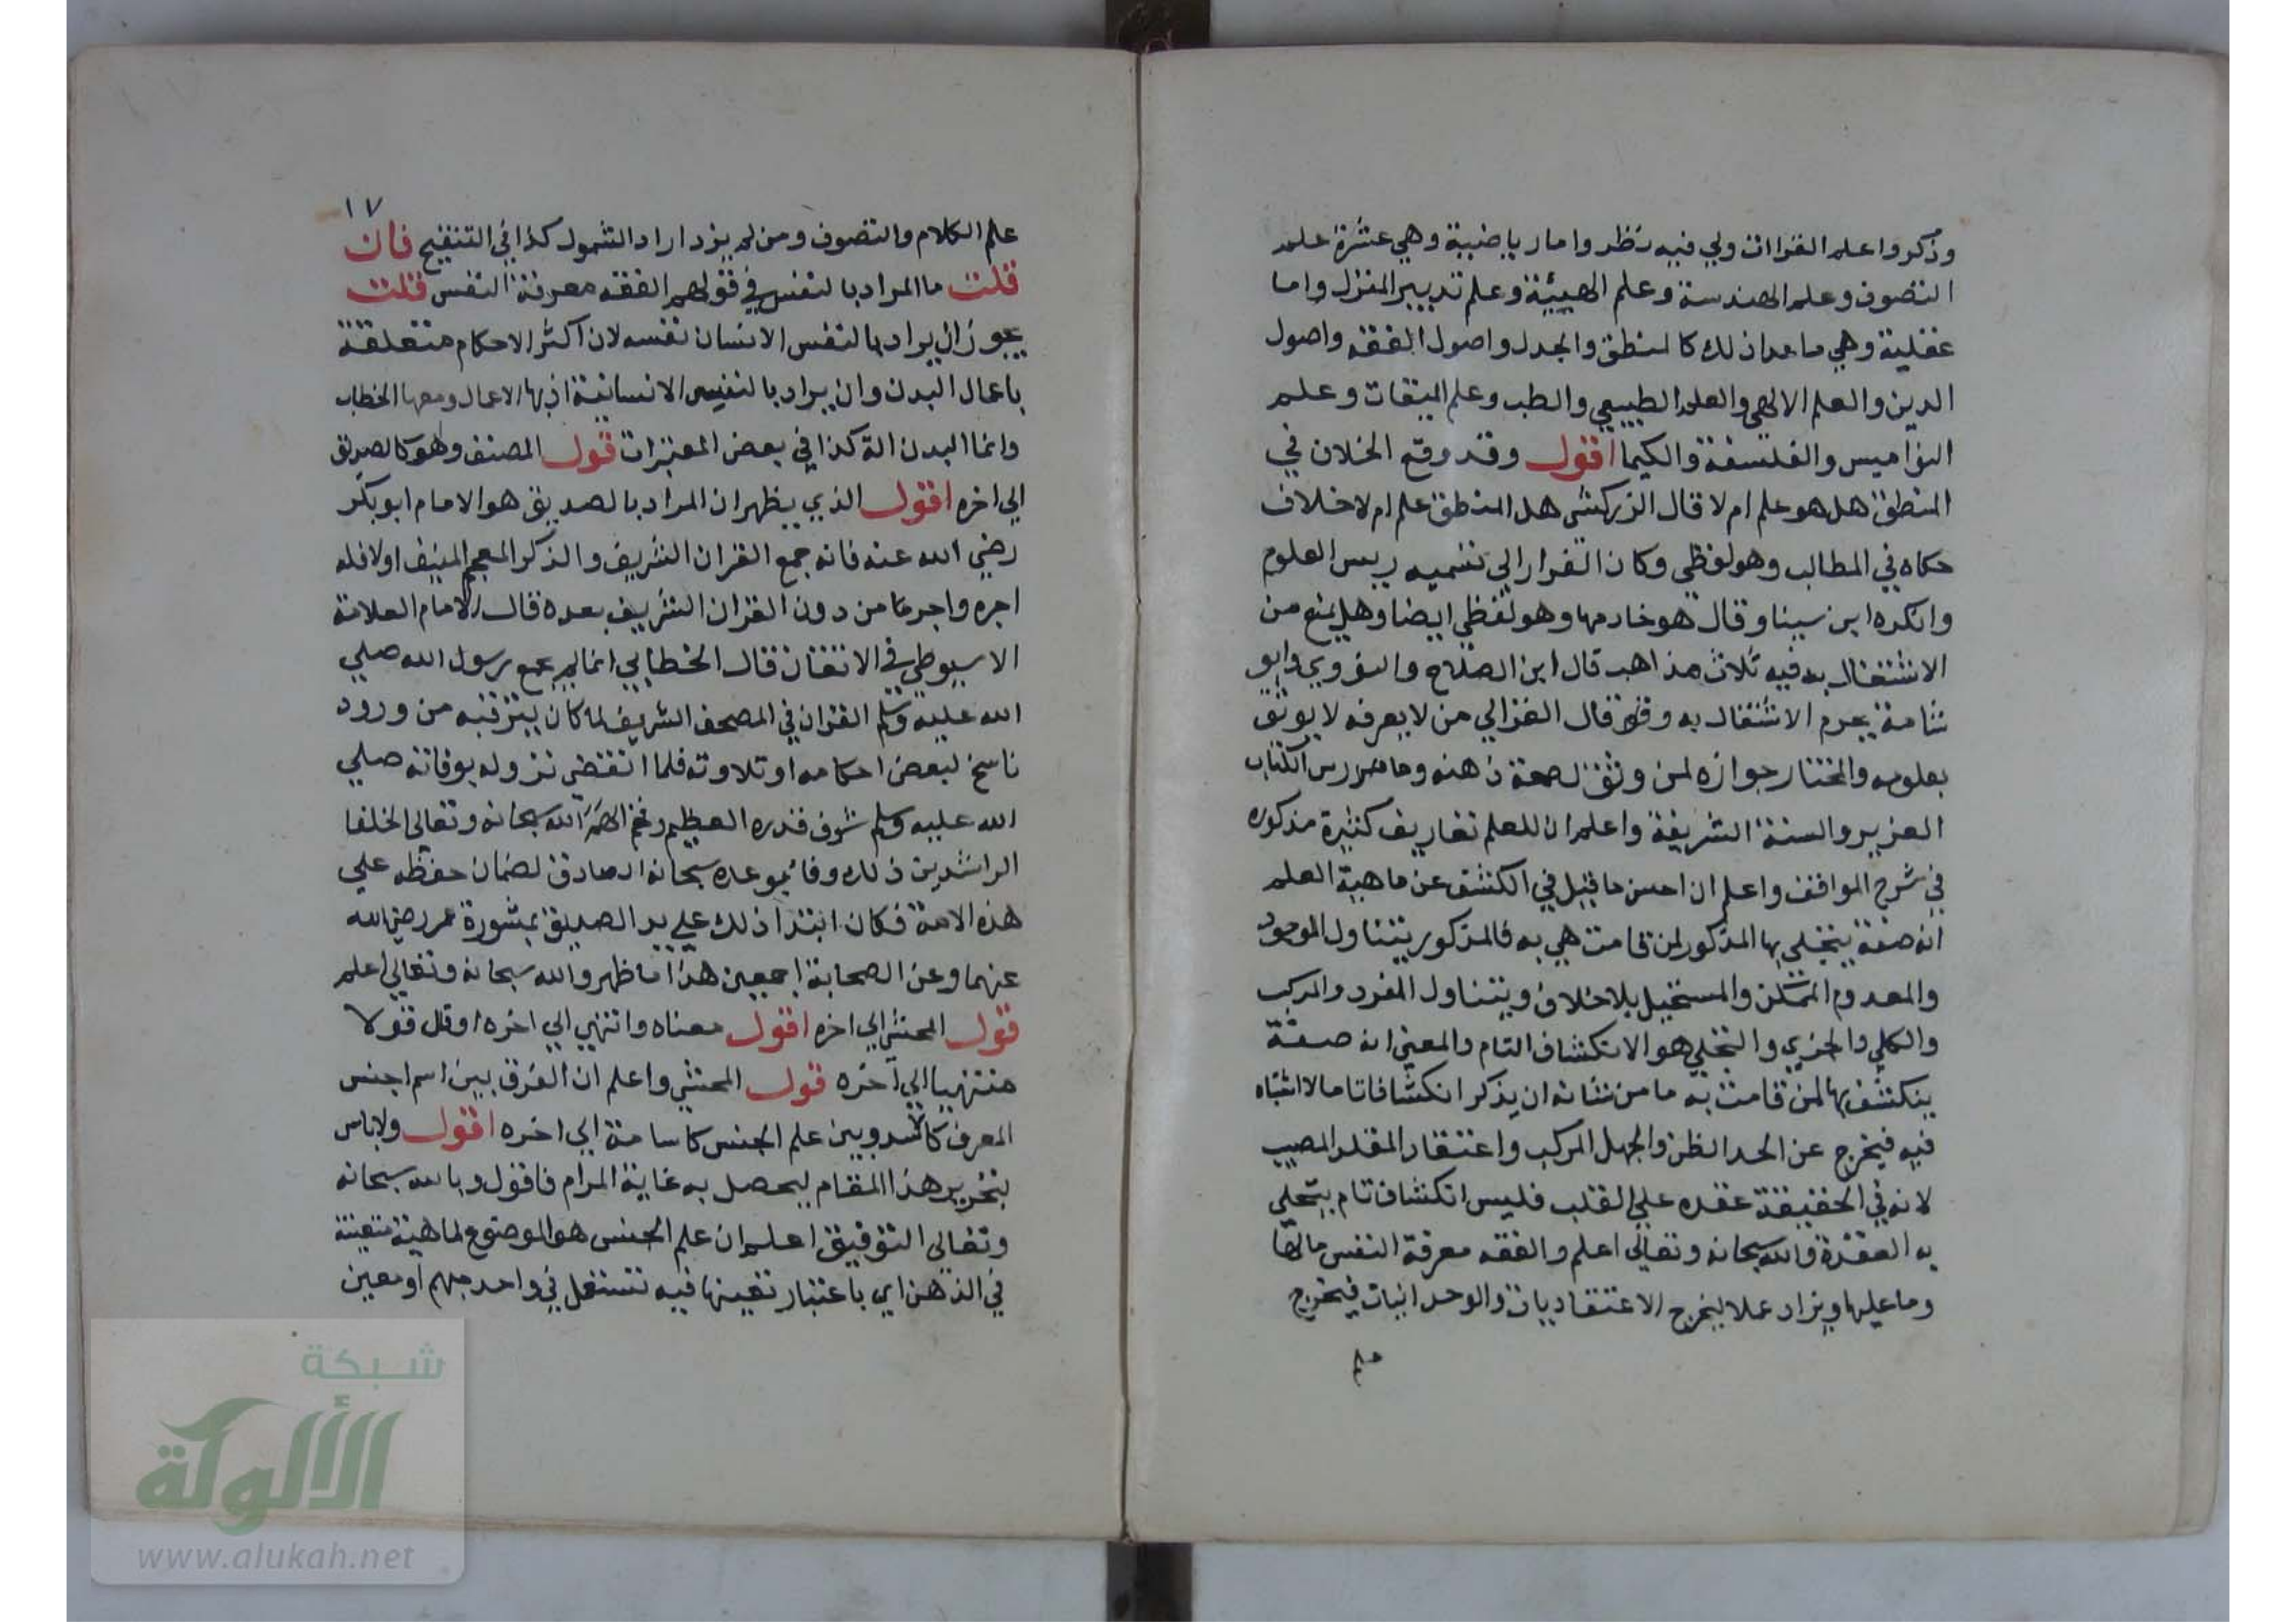 وذكروا علم القراات ولي فيه نظر واما رياضية وهي عشرة علم
التصوف وعلم الهندسة وعلم الهيئة وعلم تدبير المنزل واما
عقلية وهي ما عدا ذلك كالمنطق والجدل واصول الفقه واصول
الدين والعلم الالهي والعلم الطبيعي والطب وعلم الميقات وعلم
النواميس والفلسفة والكيميا اقول وقد وقع الخلاف في
المنطق هل هو علم ام لا قال الزركشي هل المنطق علم ام لا خلاف
حكاه في المطالب وهو لفظي وكان الفارابي تسميه ريس العلوم
وانكره ابن سينا وقال هو خادمها وهو لفظي ايضا وهل يمنع من
الاشتغال به فيه ثلاث مذاهب قال ابن الصلاح والنووي وابو
شامة يحرم الاشتغال به وقد قال الغزالي من لا يعرفه لا يوثق
بعلومه والمختار جوازه لمن وثق لصحة ذهنه ومارس الكتاب
العزيز والسنة الشريفة واعلم ان للعلم تعاريف كثيرة مذكوره
في شرح المواقف واعلم ان احسن ما قيل في الكشف عن ماهية العلم
انه صفة يتجلى بها المذكور لمن قامت هي به فالمذكور يتناول الموجود
والمعدوم الممكن والمستحيل بلا خلاف ويتناول المفرد والمركب
والكلي والجزي والتجلي هو الانكشاف التام والمعنى انه صفة
ينكشف بها لمن قامت به ما من شانه ان يذكر انكشافا تاما لا اشتباه
فيه فيخرج عن الحد الظن والجهل المركب واعتقاد المقلد المصيب
لانه في الحقيقة عقده على القلب فليس انكشاف تام يتجلى
به العقدة والله سبحانه وتعالى اعلم والفقه معرفة النفس ما لها
وما عليها ويزاد عملا ليخرج الاعتقاديات والوحدانيات فيخرج
علم
١٧
علم الكلام والتصوف ومن لم يزد اراد الشمول كذا في التنقيح فان
قلت ما المراد بالنفس في قولهم الفقه معرفة النفس قلت
يجوز ان يراد بالنفس الانسان نفسه لان اكثر الاحكام متعلقة
باعمال البدن وان يراد بالنفس الانسانية اذ بها الاعمال ومعها الخطاب
وانما البدن الة كذا في بعض المعتبرات قول المصنف وهو كالصديق
الى اخره اقول الذي يظهر ان المراد بالصديق هو الامام ابو بكر
رضي الله عنه فانه جمع القران الشريف والذكر المعجم المنيف اولا فله
اجره واجر ما من دون القران الشريف بعده قال الامام العلامة
الاسيوطي في الاتقان قال الخطابي انما لم يجمع رسول الله صلى
الله عليه وسلم القران في المصحف الشريف لما كان يترقبه من ورود
ناسخ لبعض احكامه او تلاوته فلما انقضى نزوله بوفاته صلى
الله عليه وسلم شرف قدره العظيم وفخم الهم الله سبحانه وتعالى الخلفا
الراشدين ذلك وفا بوعده سبحانه الصادق لضمان حفظه على
هذه الامة فكان ابتدا ذلك على يد الصديق بمشورة عمر رضي الله
عنهما وعن الصحابة اجمعين هذا ما ظهر والله سبحانه وتعالى اعلم
قول المحشي الى اخره اقول معناه وانتهي الى اخره او قل قولا
منتهيا الى آخره قول المحشي واعلم ان الفرق بين اسم الجنس
المعرف كالاسد وبين علم الجنس كاسامة الى اخره اقول ولا باس
بتحرير هذا المقام ليحصل به غاية المرام فاقول وبالله سبحانه
وتعالى التوفيق اعلم ان علم الجنس هو الموضوع لماهية متعينة
في الذهن اي باعتبار تعينها فيه تستعمل في واحد مبهم او معين
شبكة
الألوكة
www.alukah.net